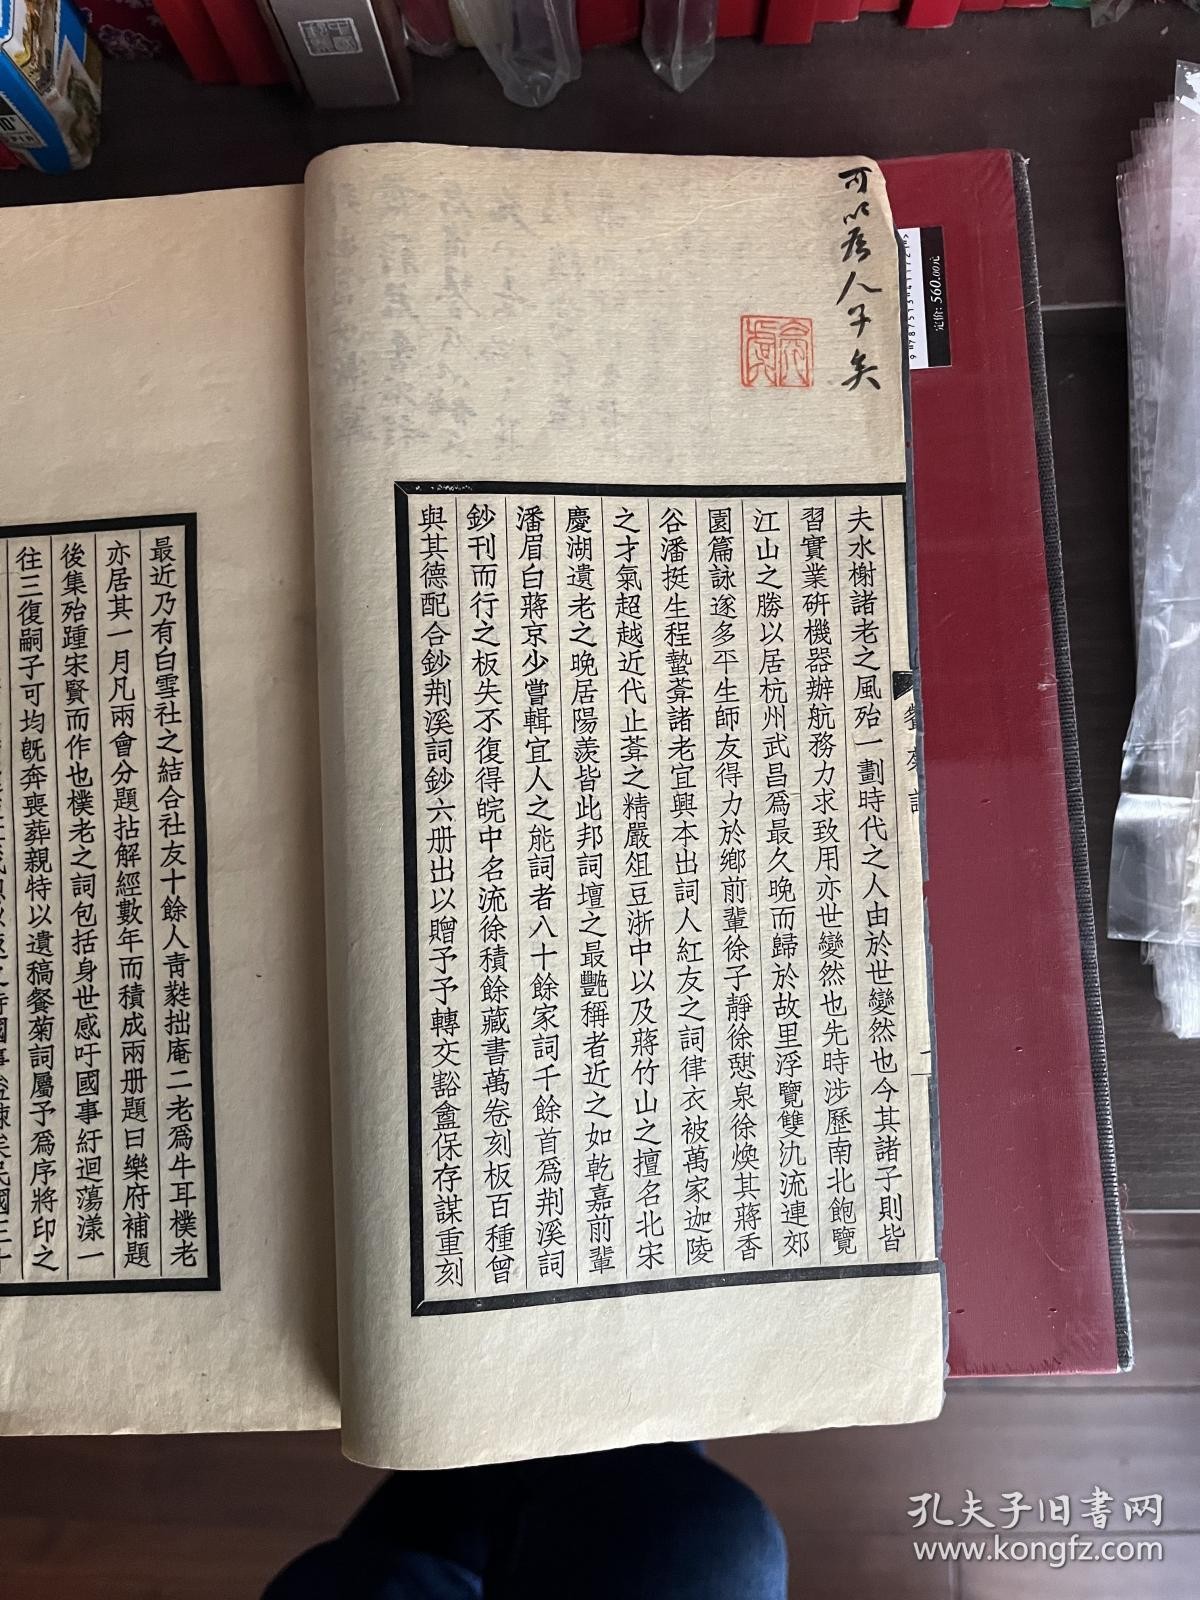 可以爲人子矣
夫水榭諸老之風殆一劃時代之人由於世變然也今其諸子則皆
習實業研機器辦航務力求致用亦世變然也先時涉歷南北飽覽
江山之勝以居杭州武昌爲最久晚而歸於故里浮覽雙氿流連郊
園篇詠遂多平生師友得力於鄉前輩徐子靜徐憇泉徐煥其蔣香
谷潘挺生程蟄葊諸老宜興本出詞人紅友之詞律衣被萬家迦陵
之才氣超越近代止葊之精嚴俎豆浙中以及蔣竹山之擅名北宋
慶湖遺老之晚居陽羨皆此邦詞壇之最艷稱者近之如乾嘉前輩
潘眉白蔣京少嘗輯宜人之能詞者八十餘家詞千餘首爲荆溪詞
鈔刊而行之板失不復得皖中名流徐積餘藏書萬卷刻板百種曾
與其德配合鈔荆溪詞鈔六册出以贈予予轉交豁盦保存謀重刻
餐菊詞
二
最近乃有白雪社之結合社友十餘人靑蕤拙庵二老爲牛耳樸老
亦居其一月凡兩會分題拈解經數年而積成兩册題曰樂府補題
後集殆踵宋賢而作也樸老之詞包括身世感吁國事紆迴蕩漾一
往三復嗣子可均旣奔喪葬親特以遺稿餐菊詞屬予爲序將印之
定价: 560.00元
孔夫子旧书网
www.kongfz.com